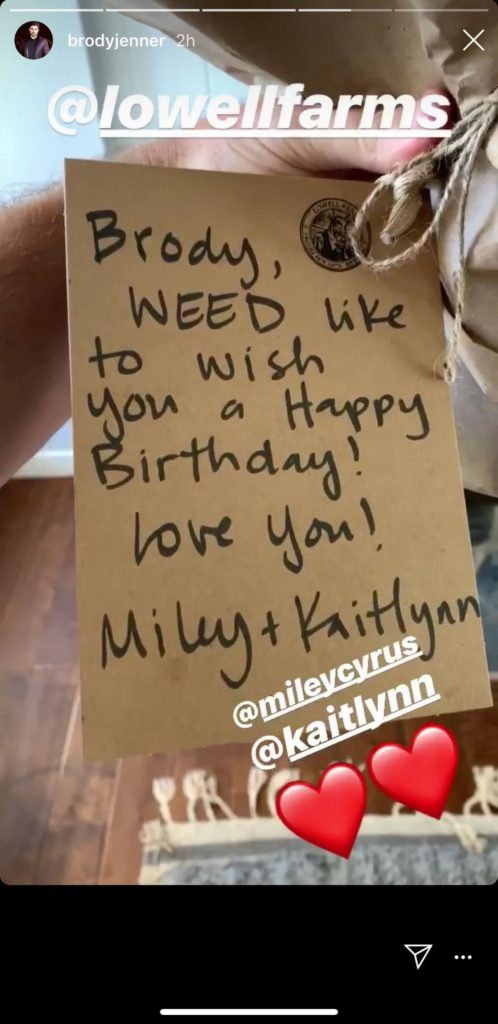 brodyjenner 2h
@lowellfarms
Brody,
WEED like
to wish
you a Happy
Birthday!
love you!
Miley + Kaitlynn
@mileycyrus
@kaitlynn